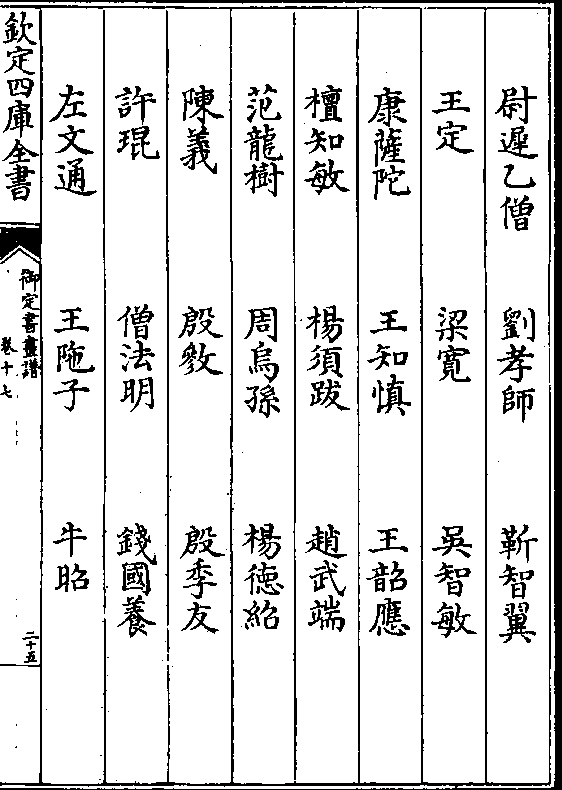 尉遲乙僧　劉孝師　靳智翼
王定　梁寛　吳智敏
康薩陀　王知慎　王韶應
檀知敏　楊須跋　趙武端
范龍樹　周烏孫　楊德紹
陳義　殷㪟　殷季友
許琨　僧法明　錢國養
左文通　王陁子　牛昭
欽定四庫全書
御定書畫譜
卷十七
二十五